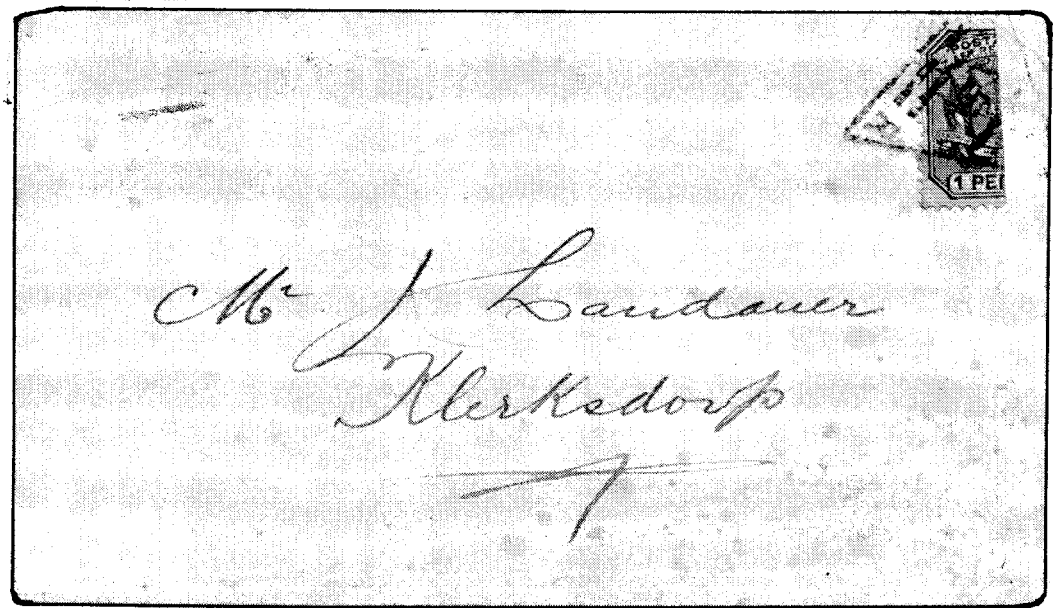 POST
1 PE
Mr J Landauer
Klerksdorp